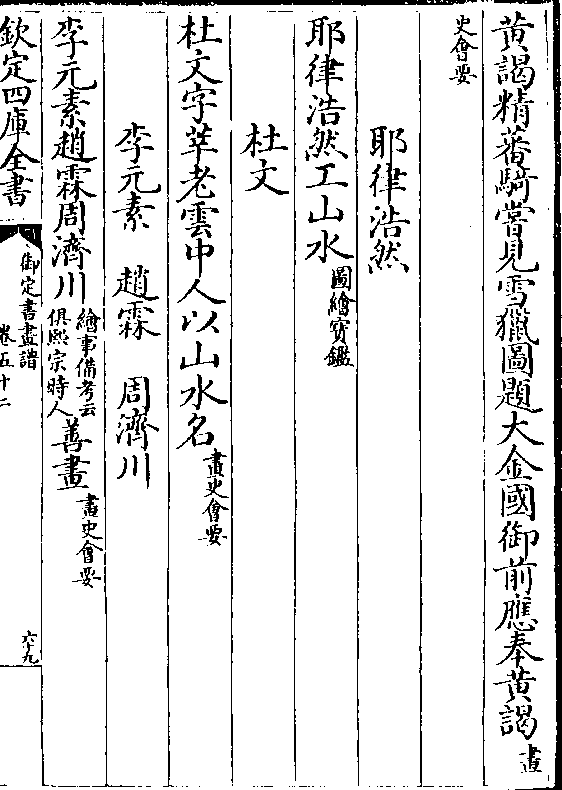 黄謁精蕃騎嘗見雪獵圖題大金國御前應奉黄謁畫
史會要
耶律浩然
耶律浩然工山水圖繪寳鑑
杜文
杜文字莘老雲中人以山水名畫史會要
李元素　趙霖　周濟川
李元素趙霖周濟川繪事備考云俱熙宗時人善畫畫史會要
欽定四庫全書
御定書畫譜
卷五十二
六十九